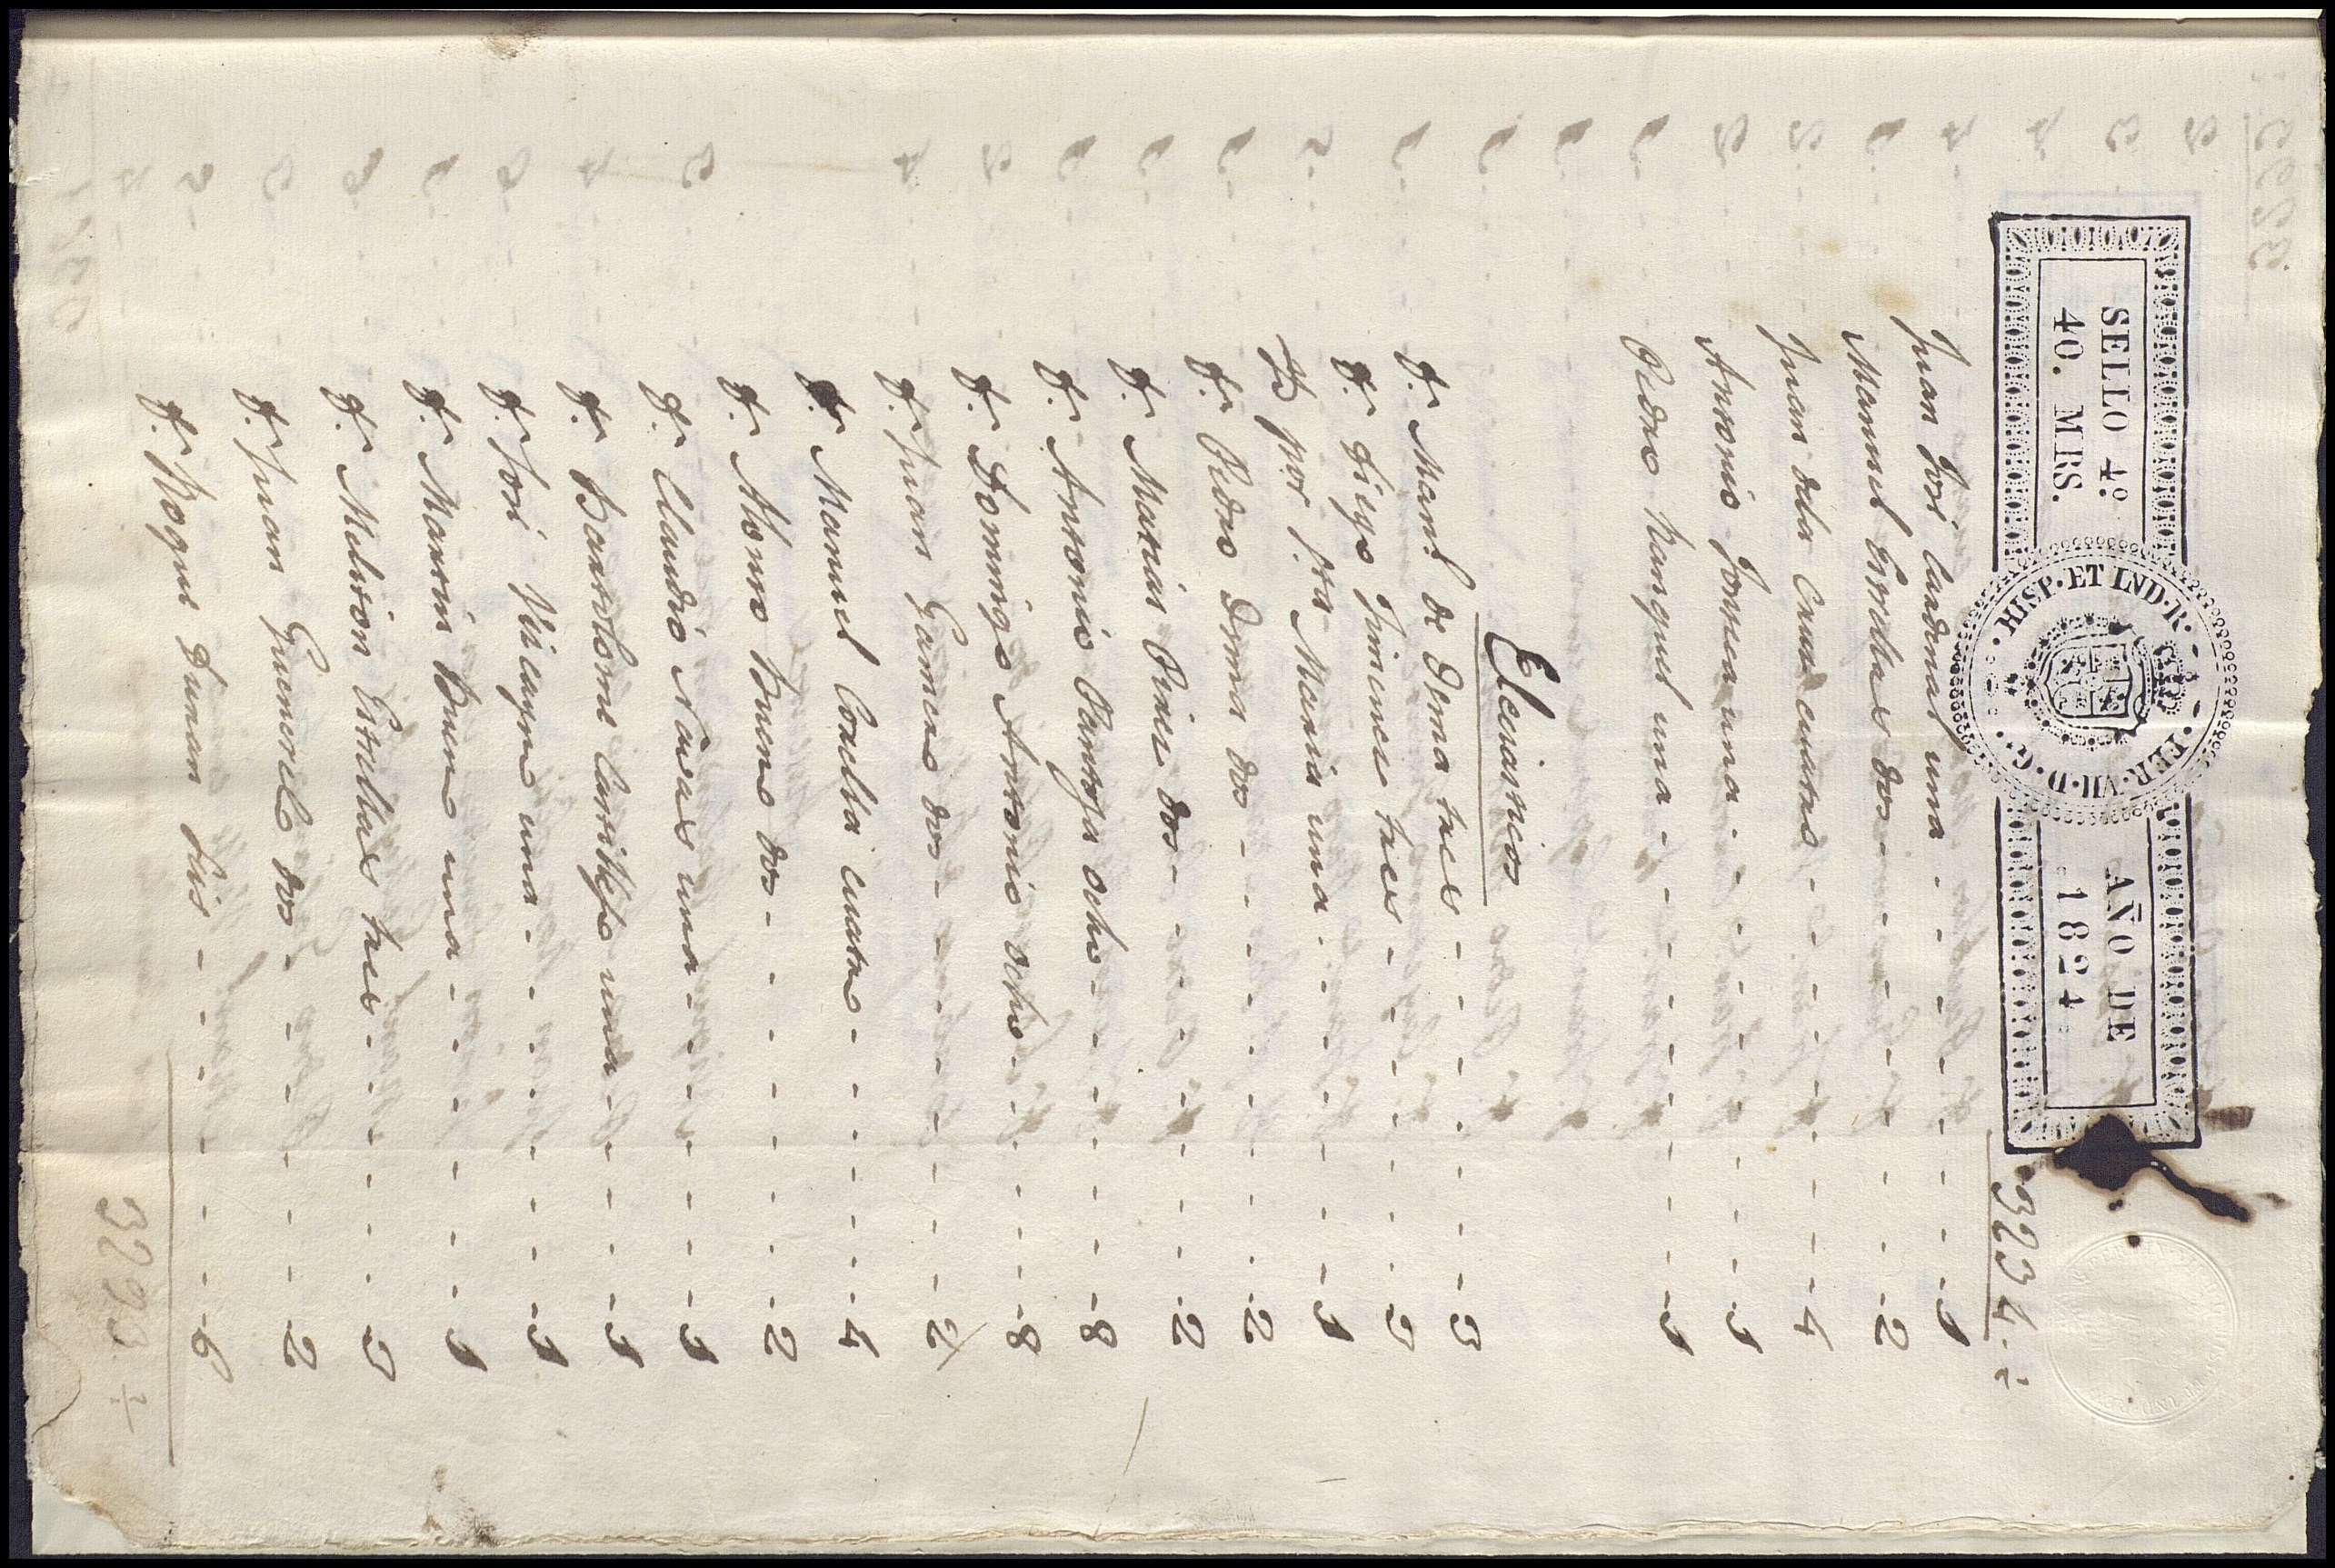 SELLO 4º AÑO DE
40. MRS. 1824
HISP. ET IND. R. FER. VII. D. G.
3234.½
Juan José Cardenas una - - - - - 1
Manuel Estrellas dos - - - - - 2
Juan dela Cruz cuatro - - - - - 4
Antonio una - - - - - 1
Pedro Ranguel una - - - - - 1
Eleciasticos
d.n Man.l de Osma tres - - - - - 3
d.n Diego Jimenez tres - - - - - 3
por Maria una - - - - - 1
d.n Pedro Osma dos - - - - - 2
d.n Matias Perez dos - - - - - 2
d.n Antonio Pantoja ocho - - - - - 8
d.n Domingo Antonio ocho - - - - - 8
d.n Juan Gamero dos - - - - - 2
d.n Manuel cuatro - - - - - 4
d.n Alonso Bueno dos - - - - - 2
d.n Claudio Navas una - - - - - 1
d.n Bartolome Castillejo una - - - - - 1
d.n José Viscayno una - - - - - 1
d.n Martin Bueno una - - - - - 1
d.n Melchor Estrellas tres - - - - - 3
d.n Juan dos - - - - - 2
d.n Roque Duran seis - - - - - 6
3293.½